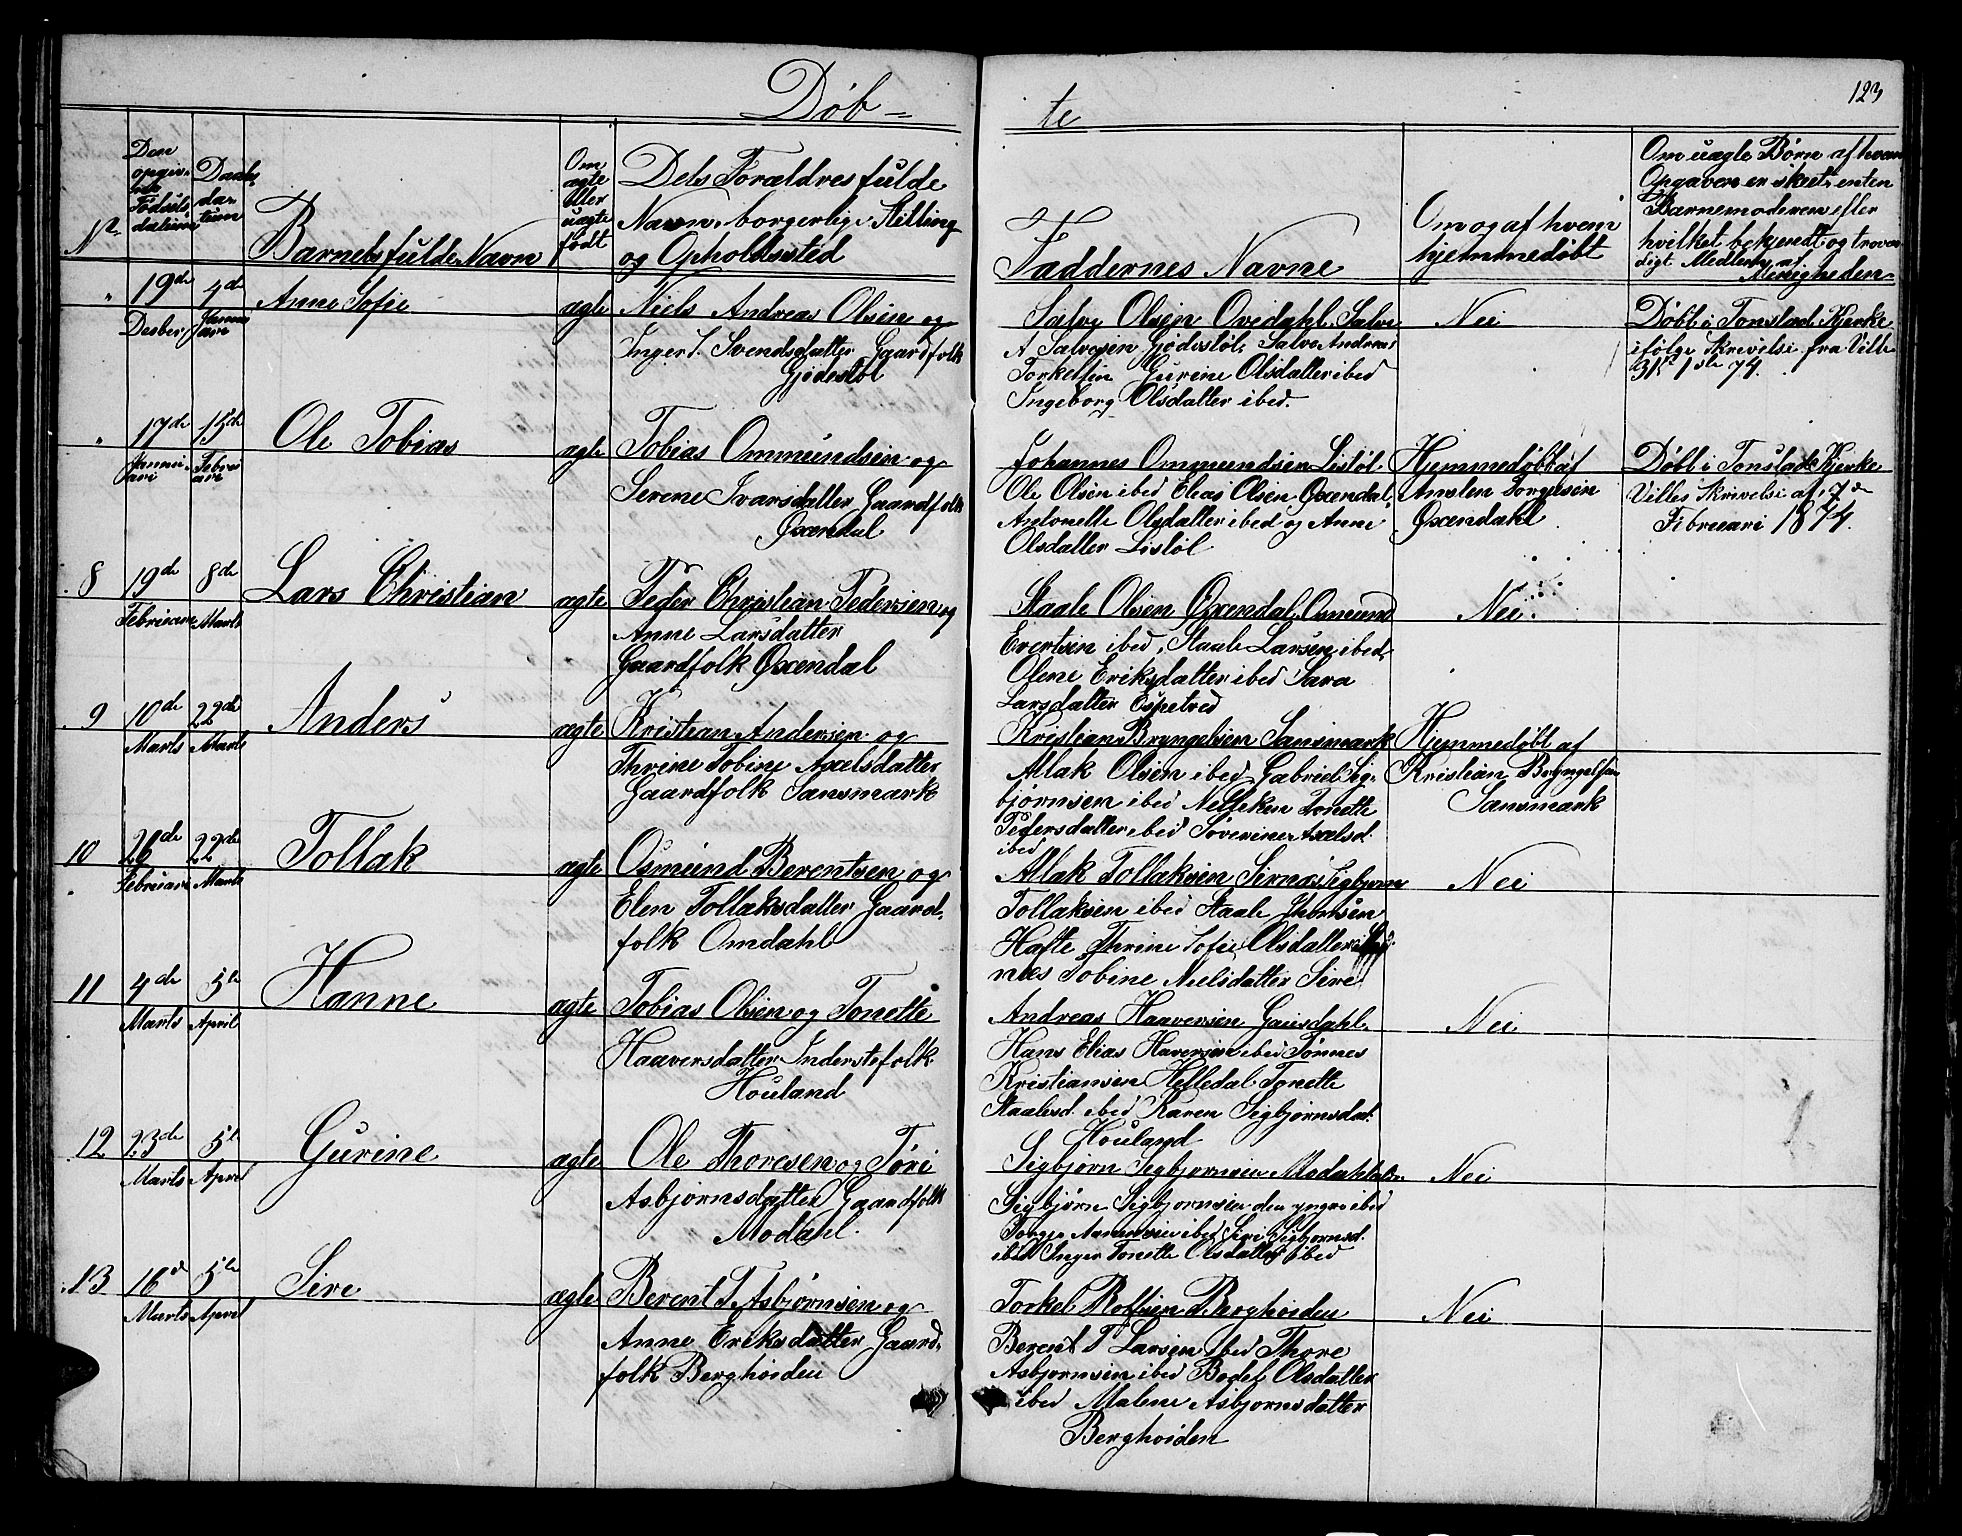 Døb-
te
123
No
Den
opgiv-
ne
Fødsels
datum
Daabs
da-
tum
Barnets fulde Navn
Om
ægte
eller
uægte
født
Dets Forældres fulde
Navn, borgerlige Stilling
og Opholdssted
Faddernes Navne
Om og af hvem
hjemmedøbt
Om uægte Børn af hvem
Opgaven er skeet enten
Barnemoderen eller
hvilket bekjendt og trovær
digt Medlem af
Menigheden
" 19de 4de Anne Sofie ægte Niels Andreas Olsen og
Desber Januari
Inger S. Svendsdatter Gaardfolk
Gjødestøl
Salve Olsen Ovedahl, Salve
A Salvesen Gjødestøl, Salve Andreas
Torkelsen Gurine Olsdatter ibed
Ingeborg Olsdatter ibed.
Nei
Døbt i Tonstad Kjerke
ifølge Skrivelse fra Ville
74.
" 17de 15de Ole Tobias ægte Tobias Ommundsen og
Januari Februari
Serene Ivarsdatter Gaardfolk
Øxendal
Johannes Ommundsen Listøl
Ole Olsen ibed Elias Olsen Øxendal,
Antonette Olsdatter ibed og Anne
Olsdatter Listøl
Hjemmedøbt af
Anslen Torgelsen
Øxendahl
Døbt i Tonstad Kjerke
Villes Skrivelse af 7de
Februari 1874.
8 19de 8de Lars Christian ægte Peder Christian Pedersen og
Februari Marts
Anne Larsdatter
Gaardfolk Øxendal
Staale Olsen Øxendal, Osmund
Evertsen ibed, Staale Larsen ibed,
Olene Eriksdatter ibed Sara
Larsdatter Ospetred
Nei
9 10de 22de Anders ægte Kristian Andersen og
Marts Marts
Thrine Tobine Axelsdatter
Gaardfolk Sansmark
Kristian Bryngelsen Sansmark
Atlak Olsen ibed Gabriel Sig-
bjørnsen ibed Nelleken Tonette
Pedersdatter ibed Soverine Axelsd.
ibed
Hjemmedøbt af
Kristian Bryngelsen
Sansmark
10 26de 22de Tollak ægte Osmund Berentsen og
Februari Marts
Elen Tollaksdatter Gaard,
folk Omdahl
Atlak Tollaksen Sirnæs, Sigbjørn
Tollaksen ibed Staale Thomsen
Hafte Thrine Sofie Olsdatter
næs Tobine Nelsdatter Sire
Nei
11 4de 5te Hanne ægte Tobias Olsen og Tonette
Marts April
Haaversdatter Inderstefolk
Houland
Andreas Haaversen Gausdahl
Hans Elias Haversen ibed Tønnes
Kristiansen Helledal Tonette
Staalesd. ibed Karen Sigbjørnsdat.
Houland
Nei
12 23de 5te Gurine ægte Ole Thoresen og Tøri
Marts April
Asbjørnsdatter Gaardfolk
Modahl.
Sigbjørn Sigbjørnsen
Sigbjørn Sigbjørnsen den yngre ibed
ibed Siri Sigbjørnsd.
ibed Inger Tonette Olsdatter ibed
Nei
.13 16d 5te Sire ægte Berent T. Asbjørnsen og
Marts April
Anne Eriksdatter Gaard,
folk Berghoiden
Torkel Rolfsen Berghoiden
Berent T Larsen ibed Thore
Asbjørnsen ibed Bodel Olsdatter
ibed Malene Asbjørnsdatter
Berghoiden
Nei